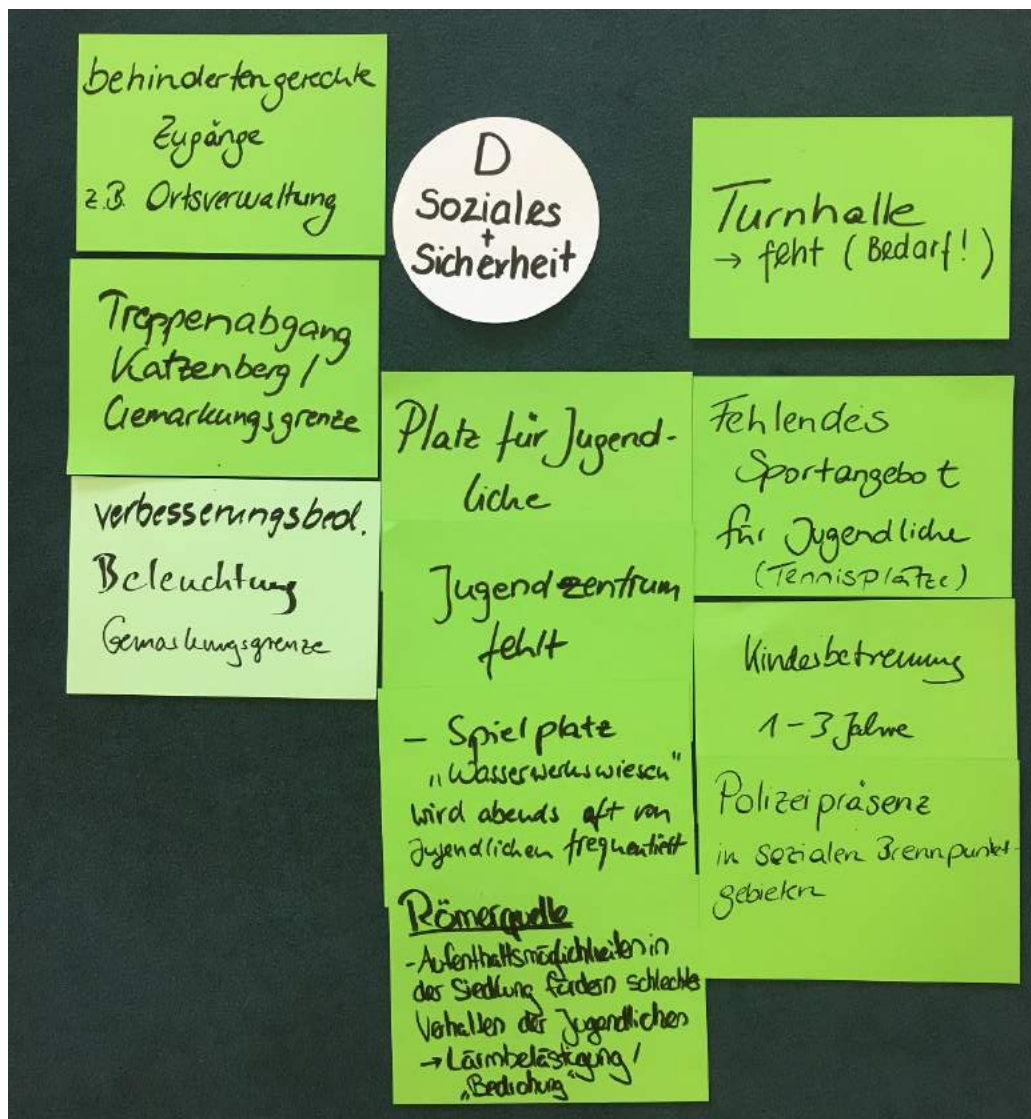 D
Soziales
+
Sicherheit
behindertengerechte
Zugänge
z.B. Ortsverwaltung
Treppenabgang
Katzenberg /
Gemarkungsgrenze
verbesserungsbed.
Beleuchtung
Gemarkungsgrenze
Platz für Jugend-
liche
Jugendzentrum
fehlt
- Spielplatz
„Wasserwerkswiesen"
wird abends oft von
Jugendlichen frequentiert
Römerquelle
- Aufenthaltsmöglichkeiten in
der Siedlung fördern schlechtes
Verhalten der Jugendlichen
→ Lärmbelästigung /
„Bedrohung"
Turnhalle
→ feht (Bedarf!)
Fehlendes
Sportangebot
für Jugendliche
(Tennisplätze)
Kinderbetreuung
1-3 Jahre
Polizeipräsenz
in sozialen Brennpunkt-
gebieten